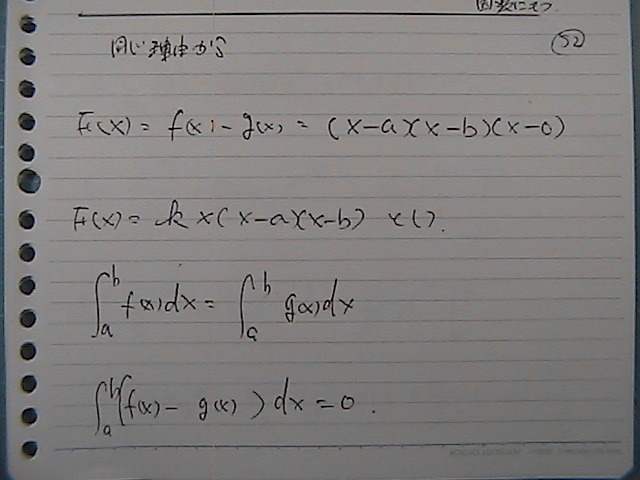 52
同じ理由から
F(x) = f(x) - g(x) = (x-a)(x-b)(x-0)
F(x) = k x(x-a)(x-b)
∫_a^b f(x)dx = ∫_a^b g(x)dx
∫_a^b (f(x) - g(x)) dx = 0.